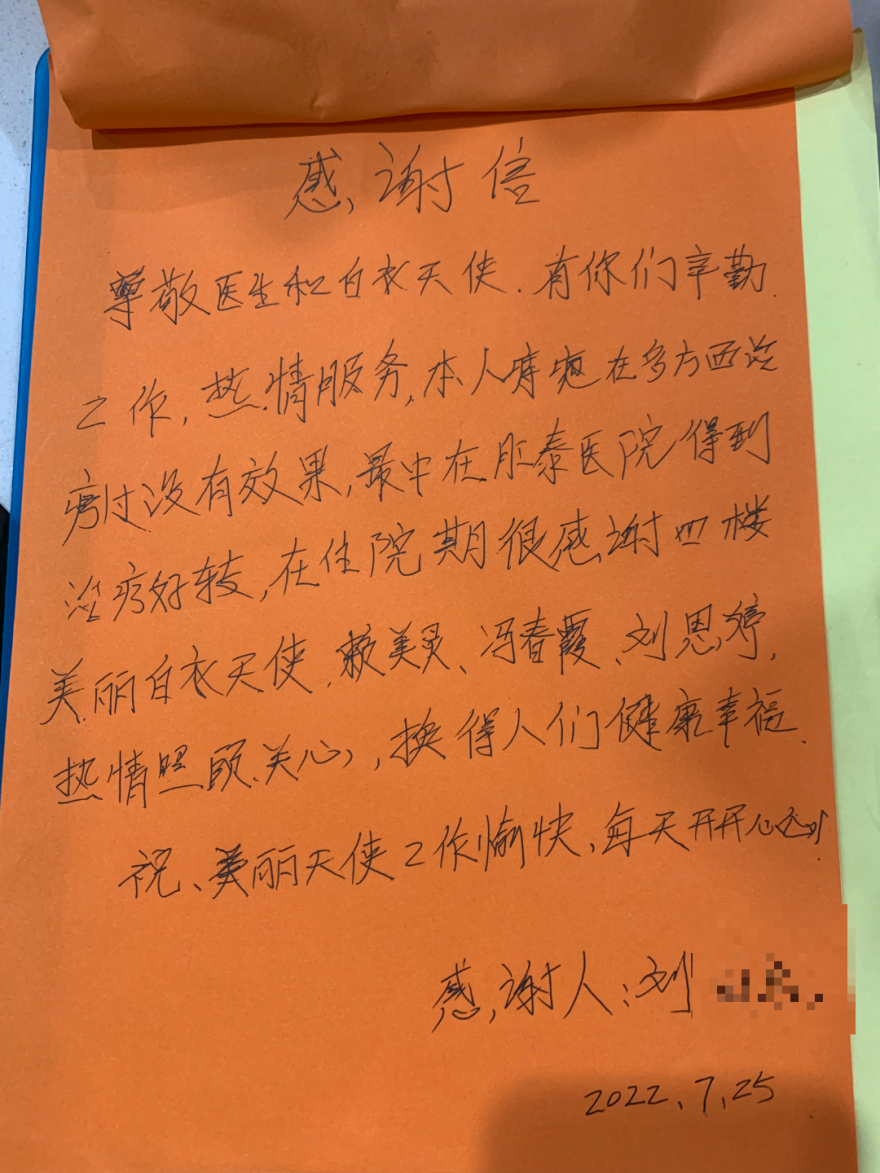 感谢信
尊敬医生和白衣天使.有你们辛勤
工作,热情服务,本人疼痛在多方面治
疗过没有效果,最中在肛泰医院得到
治疗好转,在住院期很感谢四楼
美丽白衣天使.赖美灵、冯春霞、刘思婷,
热情照顾.关心,换得人们健康幸福.
祝、美丽天使工作愉快,每天开开心心
感谢人:刘
2022.7.25